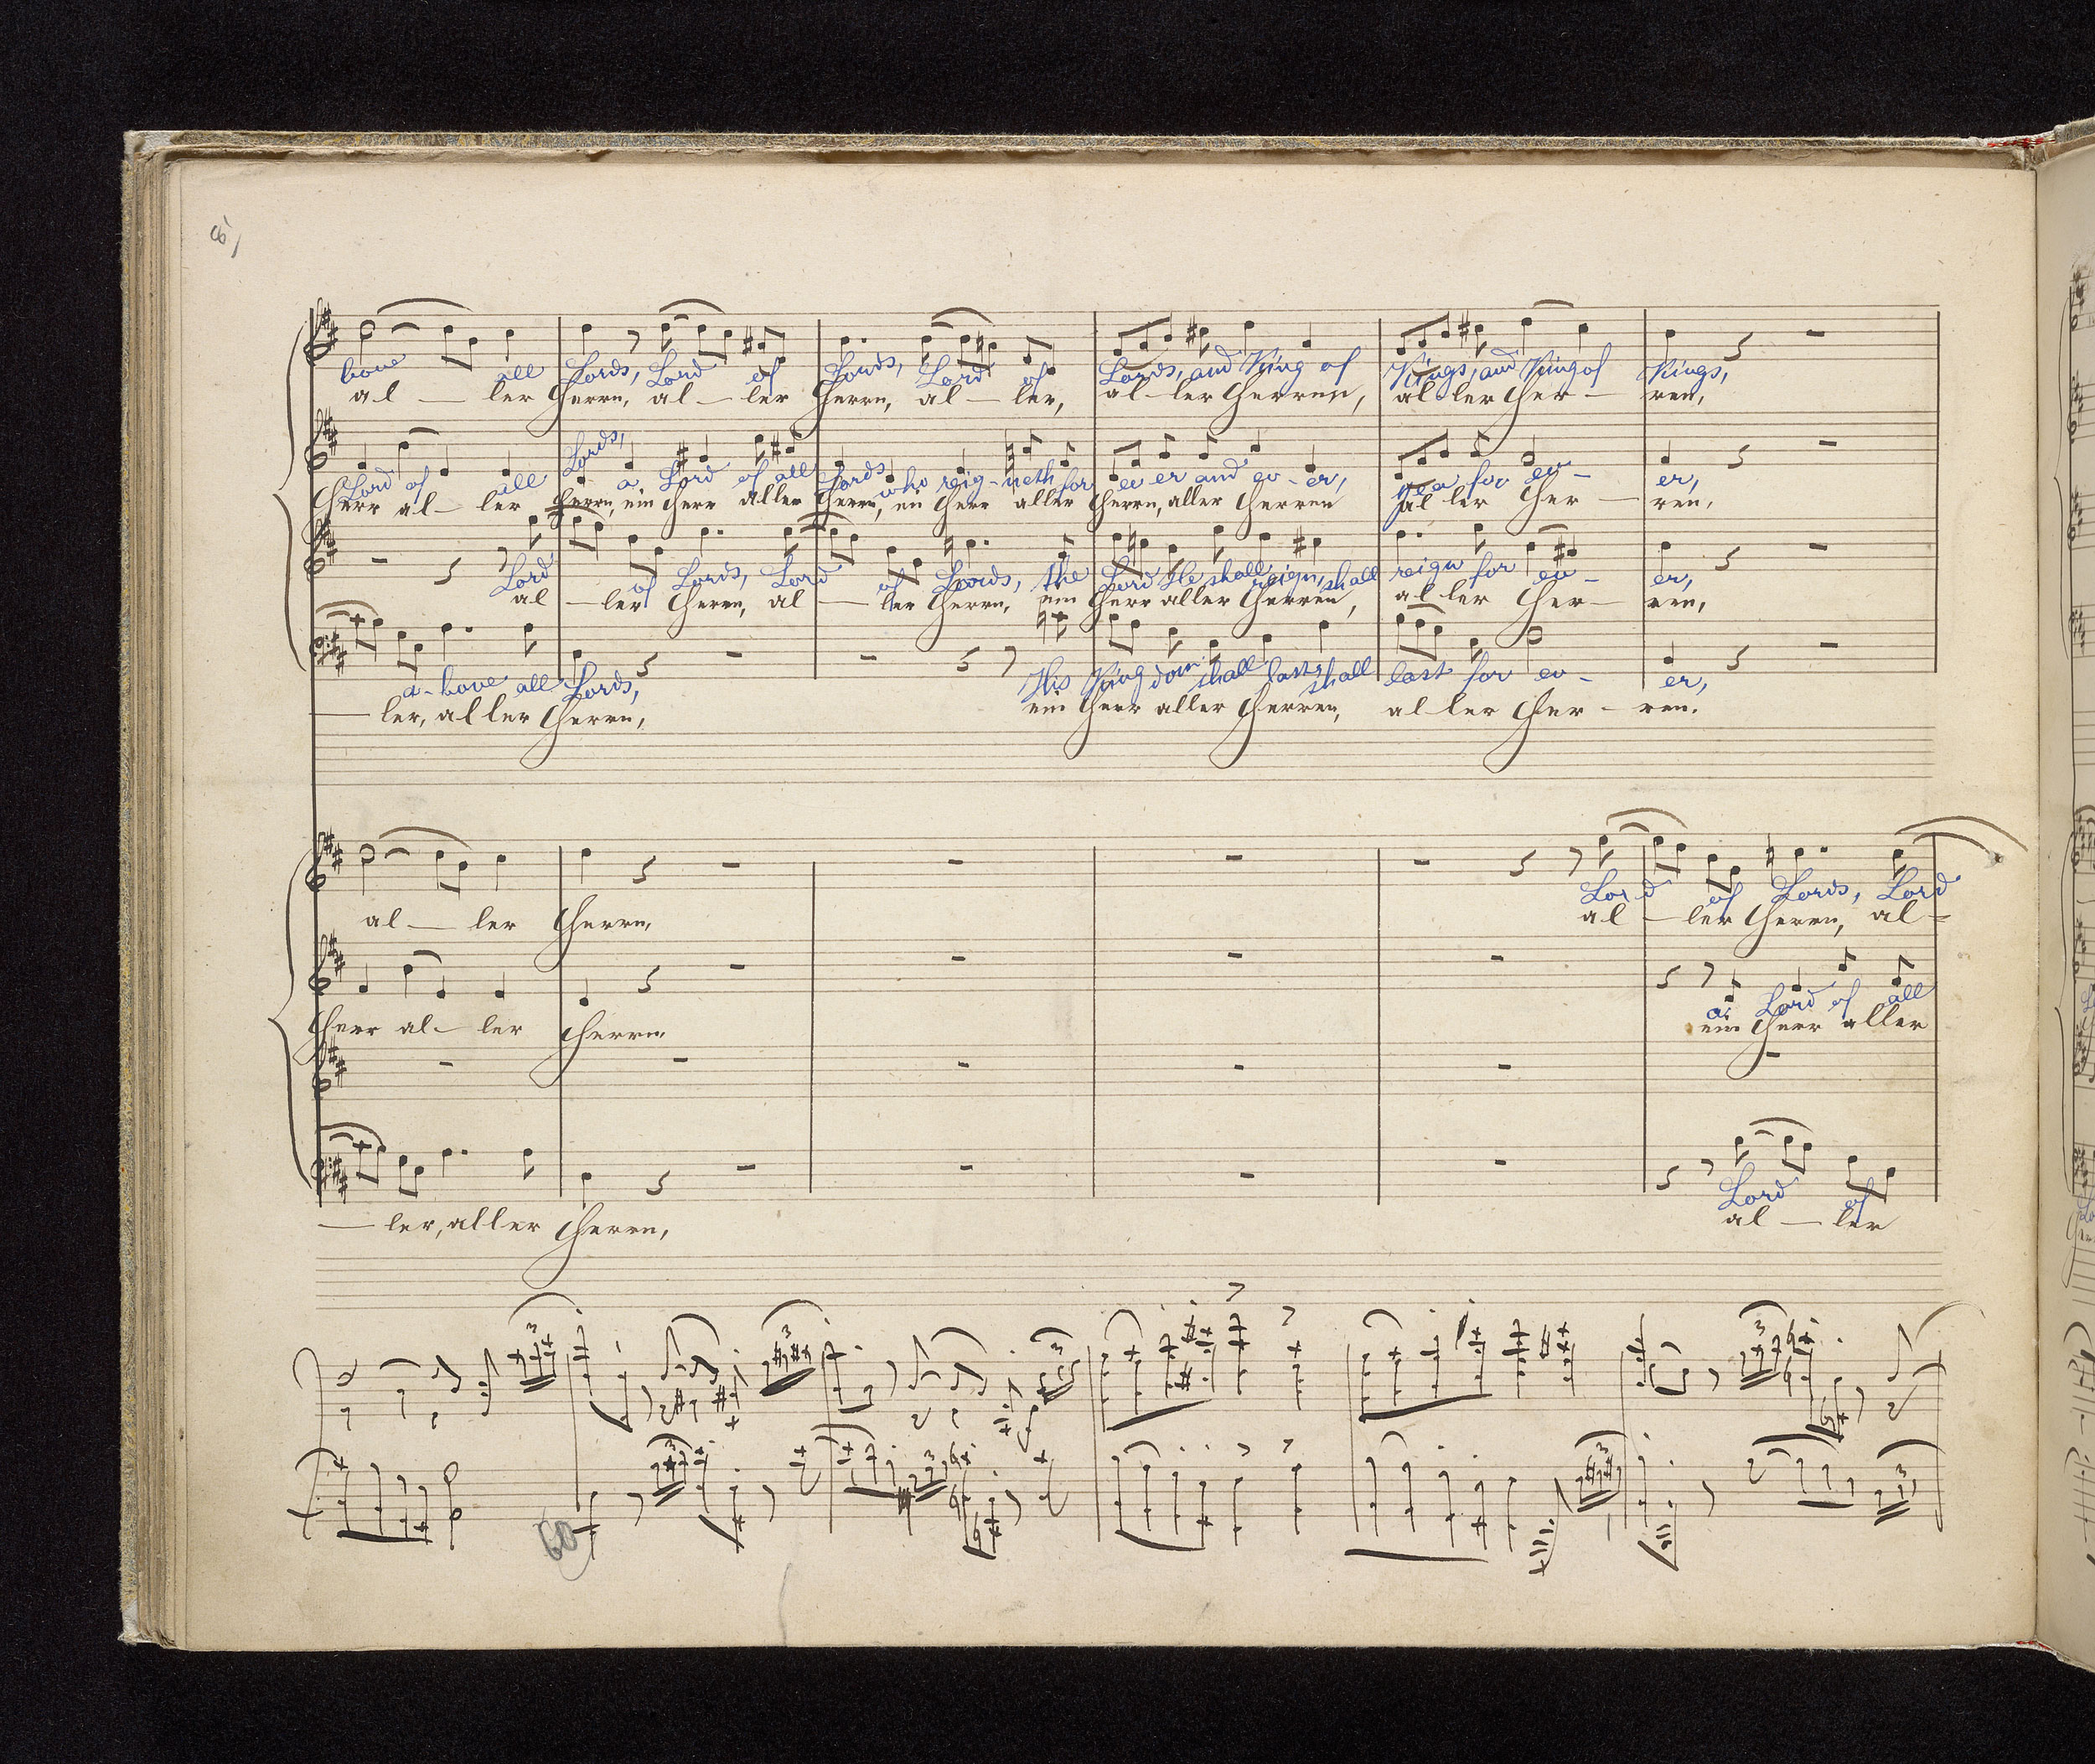 bove all Lords, Lord of Lords, Lord of Lords, and King of Kings, and King of Kings,
al — ler Herrn, al — ler Herrn, al — ler, al — ler Herren, al ler Her — ren,
Lord of all Lords, a Lord of all Lords who reig - neth for ev er and ev - er, yea for ev - er,
Herr al — ler Herrn, ein Herr aller Herrn, ein Herr aller Herrn, aller Herren al ler Her — ren,
Lord of Lords, Lord of Lords, the Lord He shall reign, shall reign for ev - er,
al — ler Herrn, al — ler Herrn, ein Herr aller Herren, al ler Her — ren,
a - bove all Lords, His King dom shall last, shall last for ev - er,
— ler, aller Herrn, ein Herr aller Herren, al ler Her — ren.
Lord of Lords, Lord
al — ler Herrn, al — ler Herrn, al —
a Lord of all
Herr al — ler Herrn ein Herr aller
Lord of
— ler, aller Herrn, al — ler
3 3 3 3
3 3 3 3
60